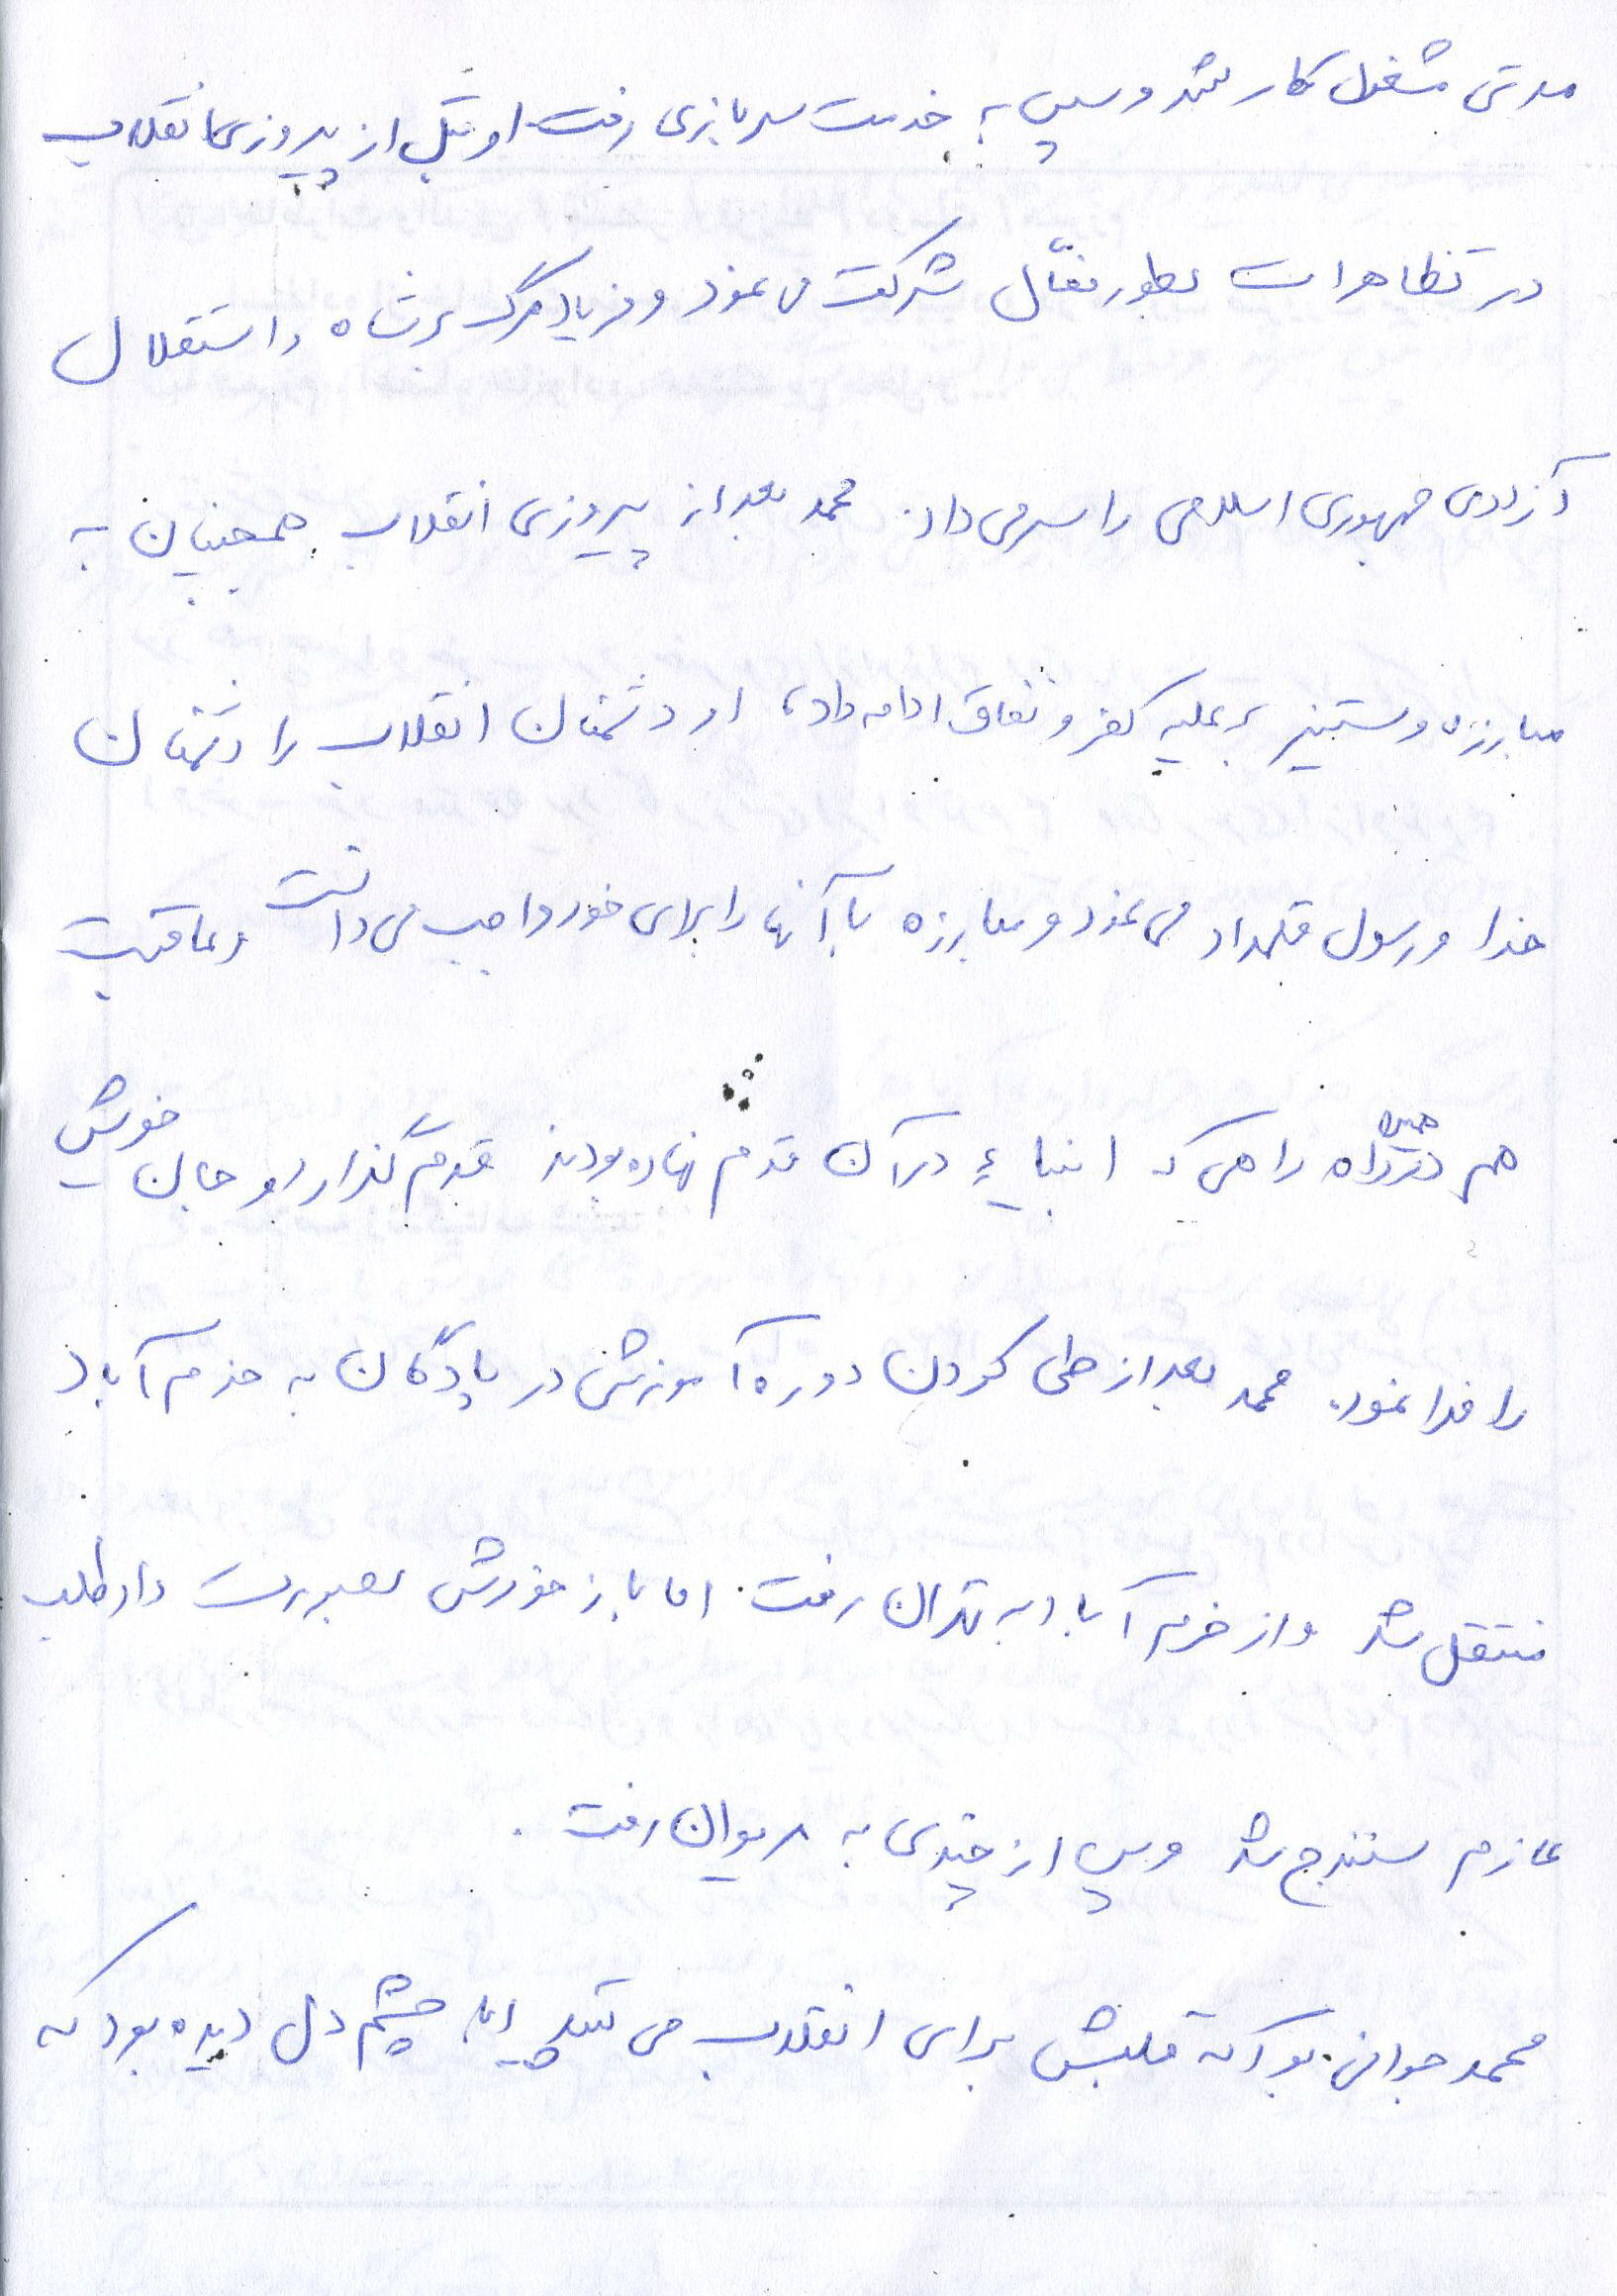 مدتی مشغول کار شد و سپس به خدمت سربازی رفت. او قبل از پیروزی انقلاب
در تظاهرات بطور فعّال شرکت می نمود و فریاد مرگ بر شاه و استقلال
آزادی جمهوری اسلامی را سر می داد. محمد بعد از پیروزی انقلاب همچنان به
مبارزه و ستیز بر علیه کفر و نفاق ادامه داد، او دشمنان انقلاب را دشمنان
خدا و رسول قلمداد می نمود و مبارزه با آنها را برای خود واجب می دانست و عاقبت
هم در همین راه راهی که انبیاء در آن قدم نهاده بودند قدم گذارد و جان خویش
را فدا نمود. محمد بعد از طی کردن دوره آموزش در پادگان به خرم آباد
منتقل شد و از خرم آباد به تهران رفت. اما باز خودش بصورت داوطلب
عازم سنندج شد و پس از چندی به مریوان رفت.
محمد جوانی بود که قلبش برای انقلاب می تپید او با چشم دل دیده بود که